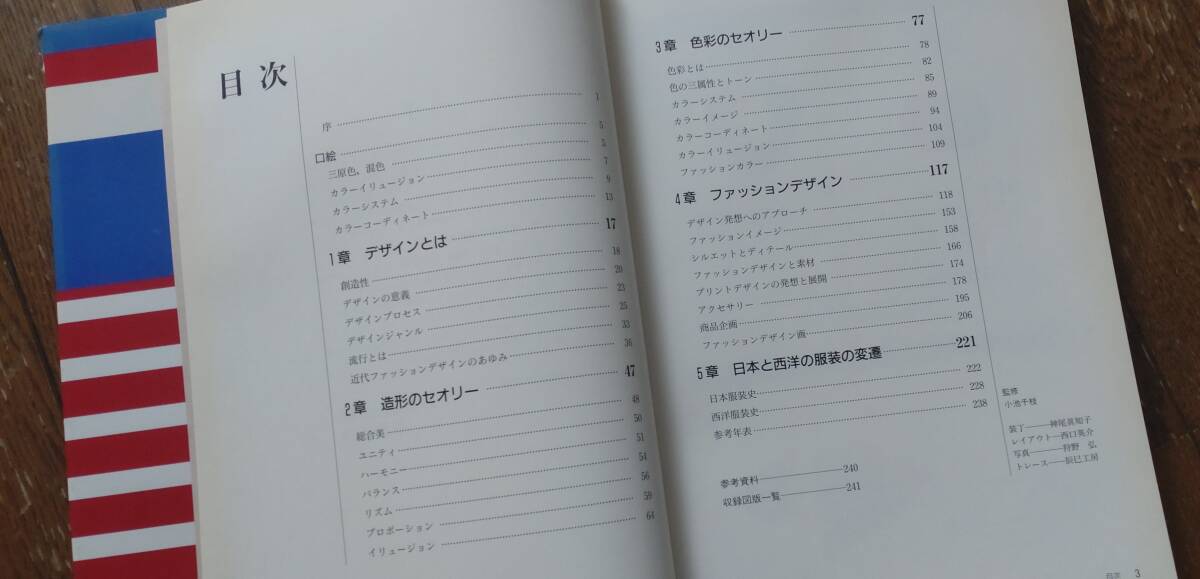 目次
序 1
口絵 5
三原色、混色 5
カラーイリュージョン 7
カラーシステム 9
カラーコーディネート 13
1章 デザインとは 17
創造性 18
デザインの意義 20
デザインプロセス 23
デザインジャンル 25
流行とは 33
近代ファッションデザインのあゆみ 36
2章 造形のセオリー 47
総合美 48
ユニティ 50
ハーモニー 51
バランス 54
リズム 56
プロポーション 59
イリュージョン 64
3章 色彩のセオリー 77
色彩とは 78
色の三属性とトーン 82
カラーシステム 85
カラーイメージ 89
カラーコーディネート 94
カラーイリュージョン 104
ファッションカラー 109
4章 ファッションデザイン 117
デザイン発想へのアプローチ 118
ファッションイメージ 153
シルエットとディテール 158
ファッションデザインと素材 166
プリントデザインの発想と展開 174
アクセサリー 178
商品企画 195
ファッションデザイン画 206
5章 日本と西洋の服装の変遷 221
日本服装史 222
西洋服装史 228
参考年表 238
参考資料 240
収録図版一覧 241
監修
小池千枝
装丁 神尾眞知子
レイアウト 西口英介
写真 狩野 弘
トレース 辰巳工房
目次 3